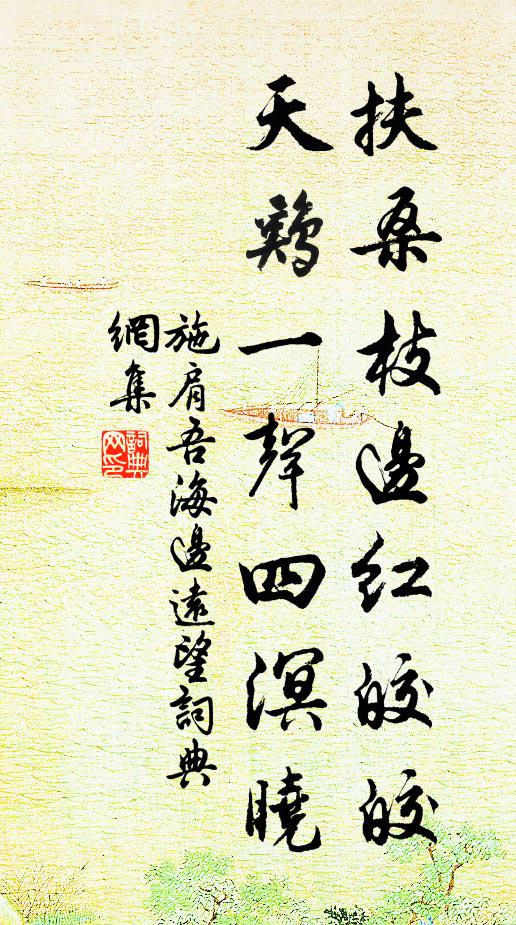 扶桑枝邊紅皎皎
天鷄一聲四溟曉
施肩吾海邊遠望詞典
網集
詞典
网印